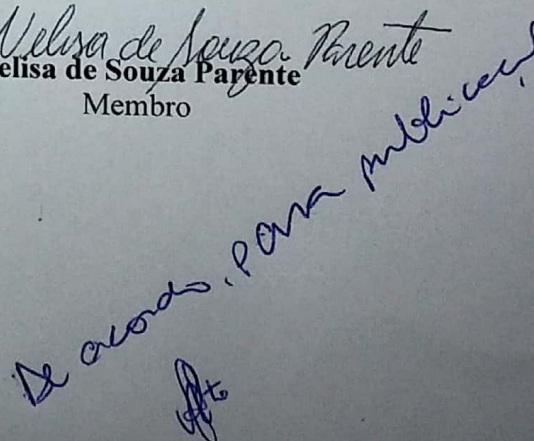 Velisa de Souza Parente
elisa de Souza Parente
Membro
De acordo, para publicaçã